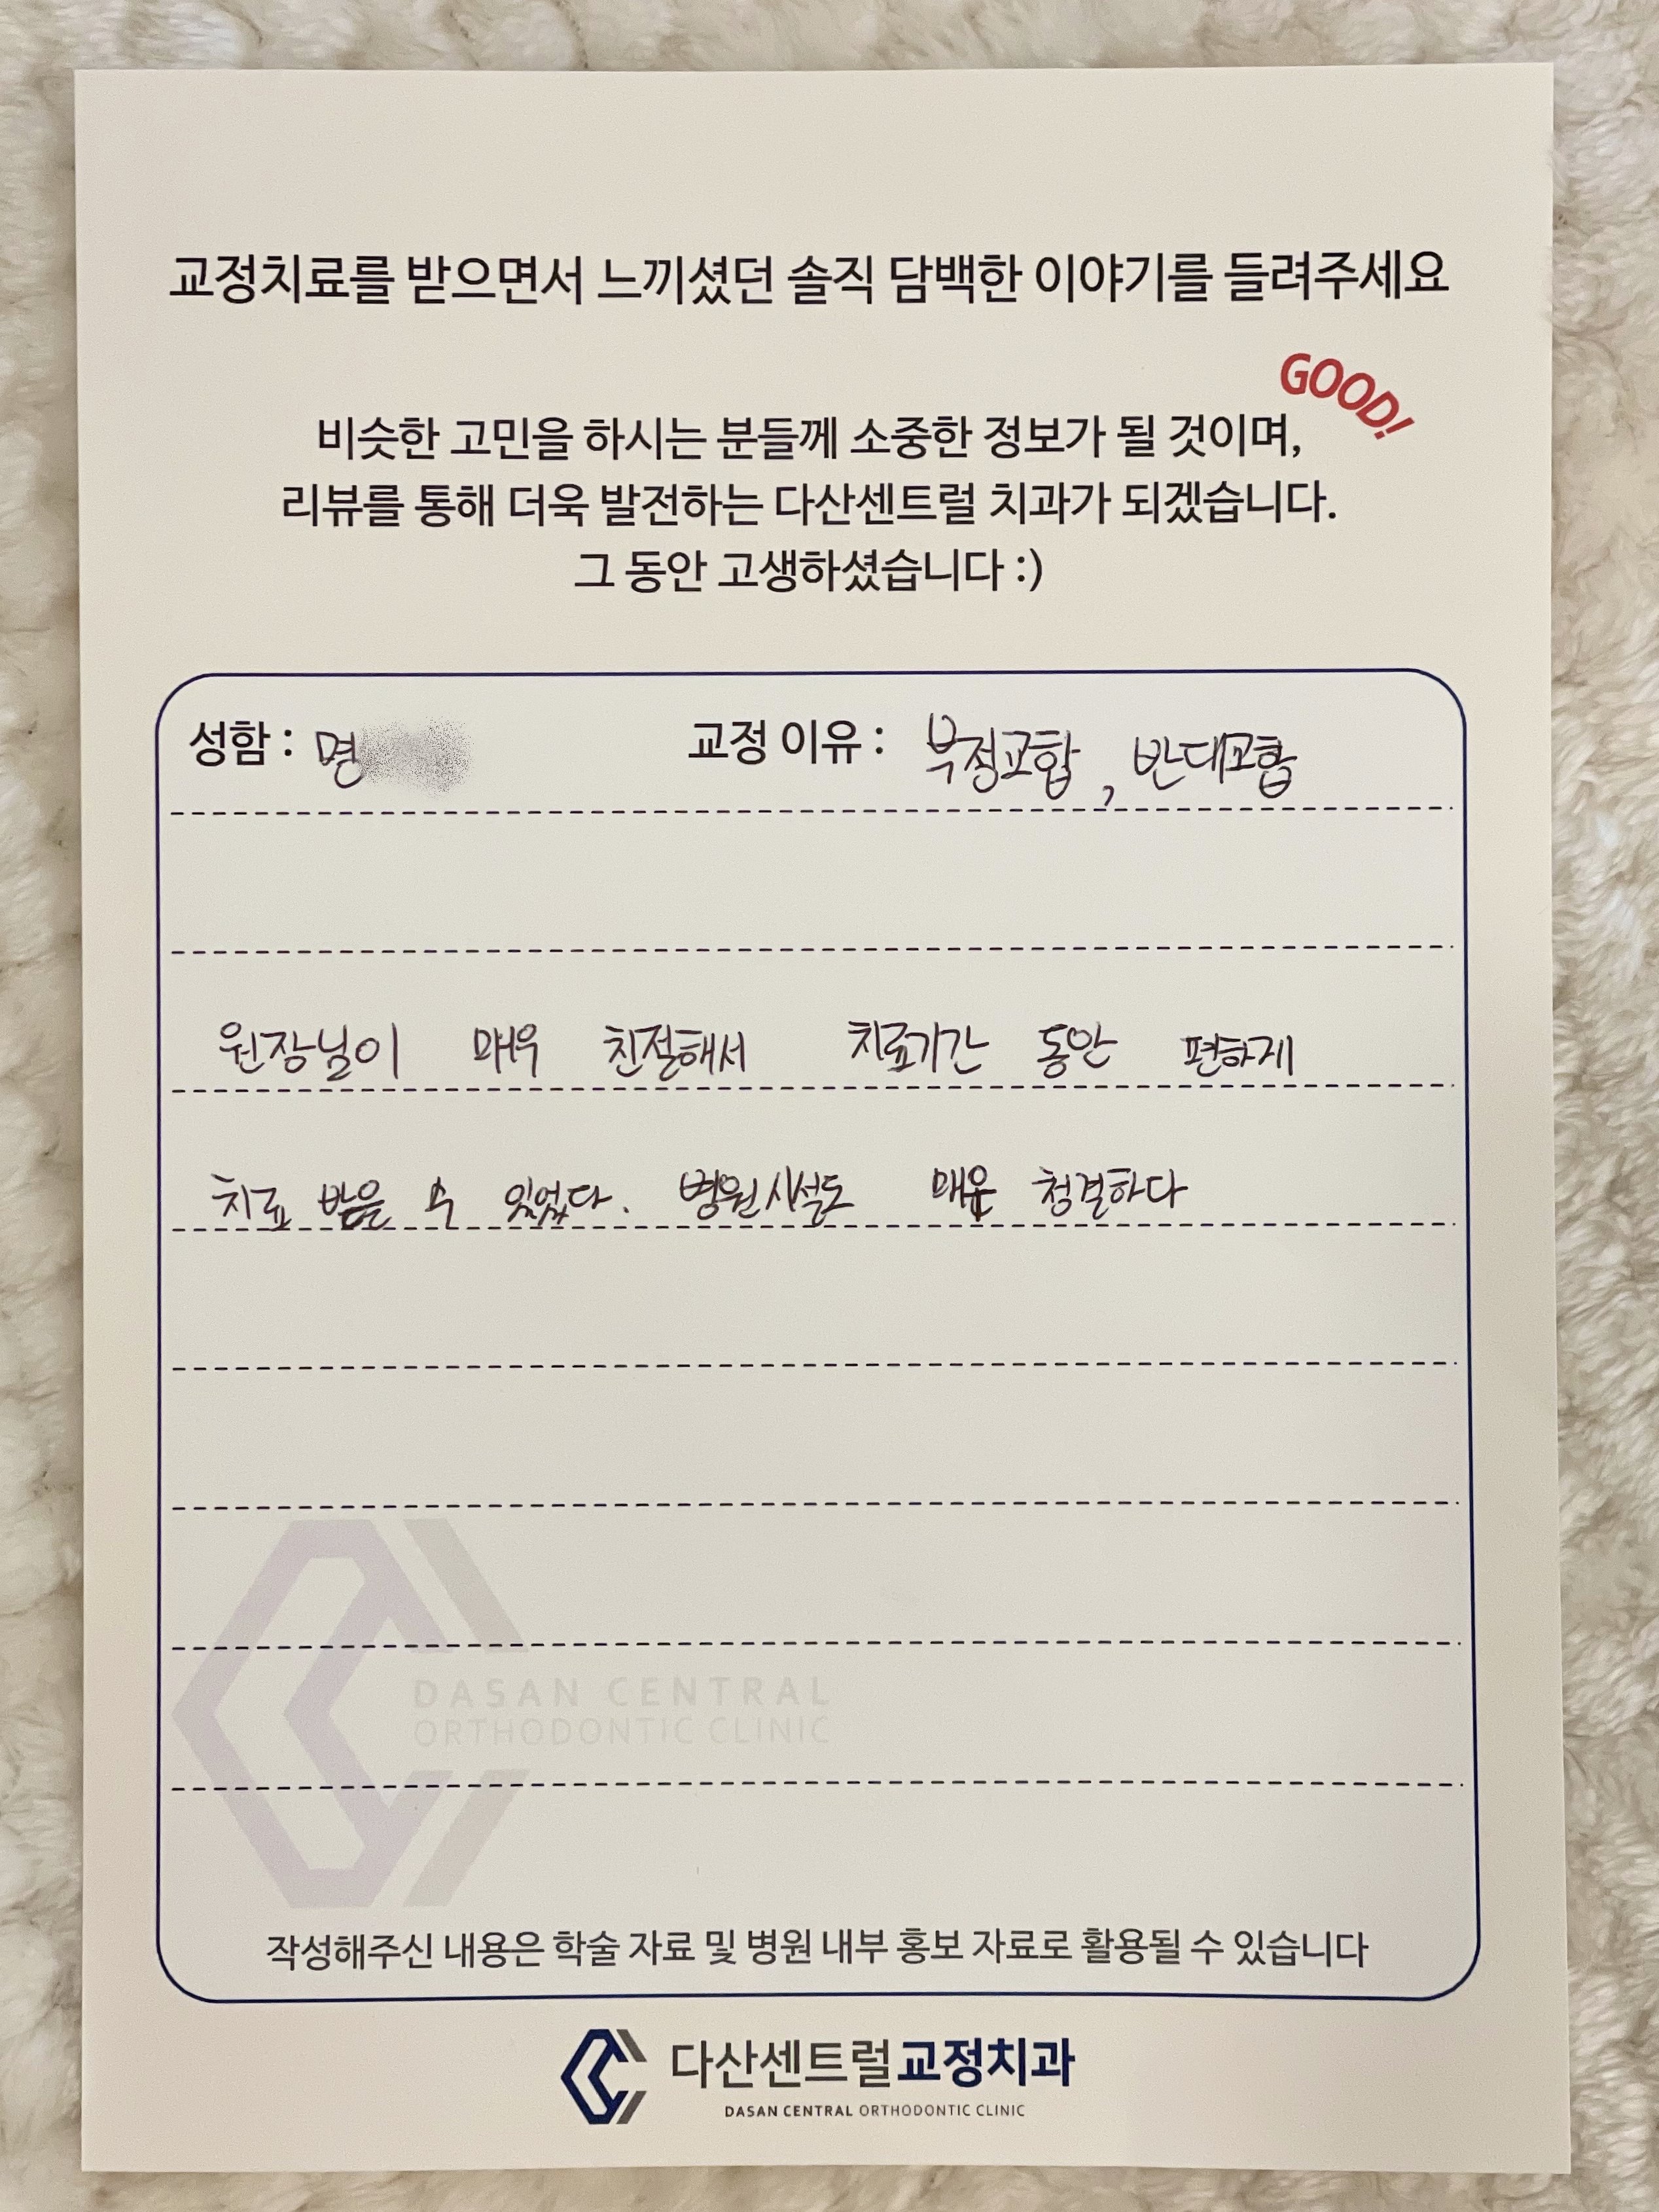 교정치료를 받으면서 느끼셨던 솔직 담백한 이야기를 들려주세요
GOOD!
비슷한 고민을 하시는 분들께 소중한 정보가 될 것이며,
리뷰를 통해 더욱 발전하는 다산센트럴 치과가 되겠습니다.
그 동안 고생하셨습니다 :)
성함 : 명 교정 이유 : 부정교합, 반대교합
원장님이 매우 친절해서 치료기간 동안 편하게
치료 받을 수 있었다. 병원시설도 매우 청결하다
DASAN CENTRAL
ORTHODONTIC CLINIC
작성해주신 내용은 학술 자료 및 병원 내부 홍보 자료로 활용될 수 있습니다
다산센트럴교정치과
DASAN CENTRAL ORTHODONTIC CLINIC